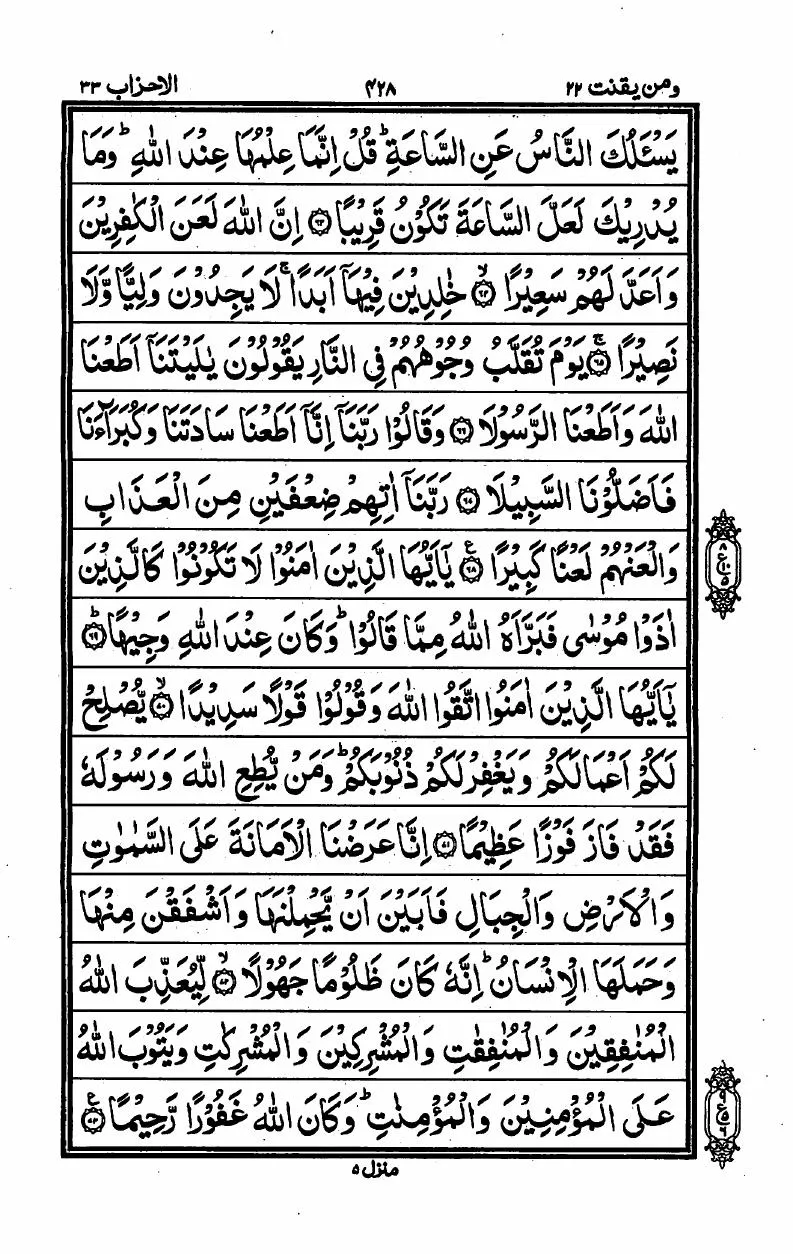 ومن يقنت ٢٢ ٤٢٨ الاحزاب ٣٣
يَسْـَٔلُكَ النَّاسُ عَنِ السَّاعَةِ ؕ قُلْ اِنَّمَا عِلْمُهَا عِنْدَ اللّٰهِ ؕ وَمَا
يُدْرِيْكَ لَعَلَّ السَّاعَةَ تَكُوْنُ قَرِيْبًا ۝٦٣ اِنَّ اللّٰهَ لَعَنَ الْكٰفِرِيْنَ
وَاَعَدَّ لَهُمْ سَعِيْرًا ۙ۝٦٤ خٰلِدِيْنَ فِيْهَاۤ اَبَدًا ۚ لَا يَجِدُوْنَ وَلِيًّا وَّلَا
نَصِيْرًا ۚ۝٦٥ يَوْمَ تُقَلَّبُ وُجُوْهُهُمْ فِى النَّارِ يَقُوْلُوْنَ يٰلَيْتَنَاۤ اَطَعْنَا
اللّٰهَ وَاَطَعْنَا الرَّسُوْلَا ۝٦٦ وَقَالُوْا رَبَّنَاۤ اِنَّاۤ اَطَعْنَا سَادَتَنَا وَكُبَرَآءَنَا
فَاَضَلُّوْنَا السَّبِيْلَا ۝٦٧ رَبَّنَاۤ اٰتِهِمْ ضِعْفَيْنِ مِنَ الْعَذَابِ
وَالْعَنْهُمْ لَعْنًا كَبِيْرًا ۝٦٨ ع يٰۤاَيُّهَا الَّذِيْنَ اٰمَنُوْا لَا تَكُوْنُوْا كَالَّذِيْنَ
٨ ع ١٠ ٥
اٰذَوْا مُوْسٰى فَبَرَّاَهُ اللّٰهُ مِمَّا قَالُوْا ؕ وَكَانَ عِنْدَ اللّٰهِ وَجِيْهًا ؕ۝٦٩
يٰۤاَيُّهَا الَّذِيْنَ اٰمَنُوا اتَّقُوا اللّٰهَ وَقُوْلُوْا قَوْلًا سَدِيْدًا ۙ۝٧٠ يُّصْلِحْ
لَكُمْ اَعْمَالَكُمْ وَيَغْفِرْ لَكُمْ ذُنُوْبَكُمْ ؕ وَمَنْ يُّطِعِ اللّٰهَ وَرَسُوْلَهٗ
فَقَدْ فَازَ فَوْزًا عَظِيْمًا ۝٧١ اِنَّا عَرَضْنَا الْاَمَانَةَ عَلَى السَّمٰوٰتِ
وَالْاَرْضِ وَالْجِبَالِ فَاَبَيْنَ اَنْ يَّحْمِلْنَهَا وَاَشْفَقْنَ مِنْهَا
وَحَمَلَهَا الْاِنْسَانُ ؕ اِنَّهٗ كَانَ ظَلُوْمًا جَهُوْلًا ۙ۝٧٢ لِّيُعَذِّبَ اللّٰهُ
الْمُنٰفِقِيْنَ وَالْمُنٰفِقٰتِ وَالْمُشْرِكِيْنَ وَالْمُشْرِكٰتِ وَيَتُوْبَ اللّٰهُ
عَلَى الْمُؤْمِنِيْنَ وَالْمُؤْمِنٰتِ ؕ وَكَانَ اللّٰهُ غَفُوْرًا رَّحِيْمًا ۝٧٣ ع
٩ ع ٥ ٦
منزل ٥